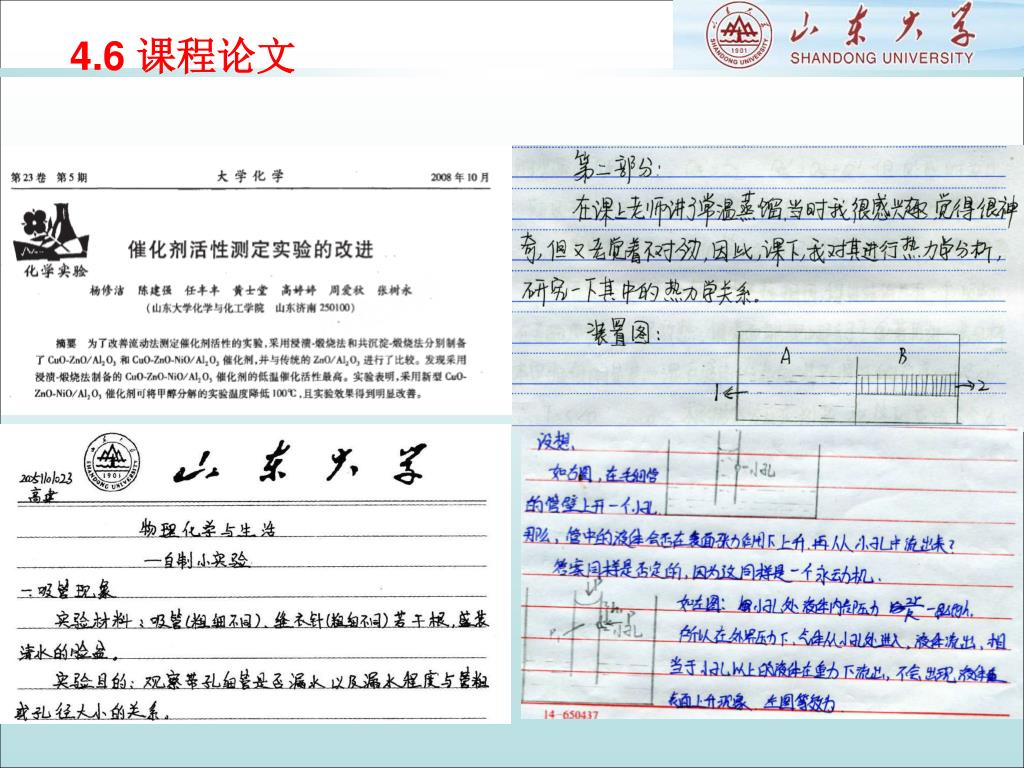 4.6 课程论文
山东大学
SHANDONG UNIVERSITY
第23卷 第5期
大学化学
2008年10月
化学实验
催化剂活性测定实验的改进
杨修洁 陈建强 任丰丰 黄士堂 高婷婷 周爱秋 张树永
(山东大学化学与化工学院 山东济南 250100)
摘要 为了改善流动法测定催化剂活性的实验,采用浸渍-煅烧法和共沉淀-煅烧法分别制备
了 CuO-ZnO/Al₂O₃ 和 CuO-ZnO-NiO/Al₂O₃ 催化剂,并与传统的 ZnO/Al₂O₃ 进行了比较。发现采用
浸渍-煅烧法制备的 CuO-ZnO-NiO/Al₂O₃ 催化剂的低温催化活性最高。实验表明,采用新型 CuO-
ZnO-NiO/Al₂O₃ 催化剂可将甲醇分解的实验温度降低 100℃,且实验效果得到明显改善。
第二部分:
在课上老师讲了常温蒸馏,当时我很感兴趣,觉得很神
奇,但又总觉着不对劲,因此,课下,我对其进行热力学分析,
研究一下其中的热力学关系。
装置图:
A
B
1
2
山东大学
SHANDONG UNIVERSITY
1901
高建
物理化学与生活
—自制小实验
一.吸管现象
实验材料:吸管(粗细不同).缝衣针(粗细不同)若干根,盛装
清水的脸盆。
实验目的:观察带孔细管是否漏水以及漏水程度与管粗
或孔径大小的关系。
设想.
如右图,在毛细管
的管壁上开一个小孔.
小孔
那么,管中的液体会否在表面张力作用下上升,再从小孔中流出来?
答案同样是否定的,因为这同样是一个永动机.
如左图:
小孔处液体内部压力
小孔
所以在外界压力下,气体从小孔处进入,液体流出,相
当于小孔以上的液体在重力下流出,不会出现液体
表面上升现象
14-650437